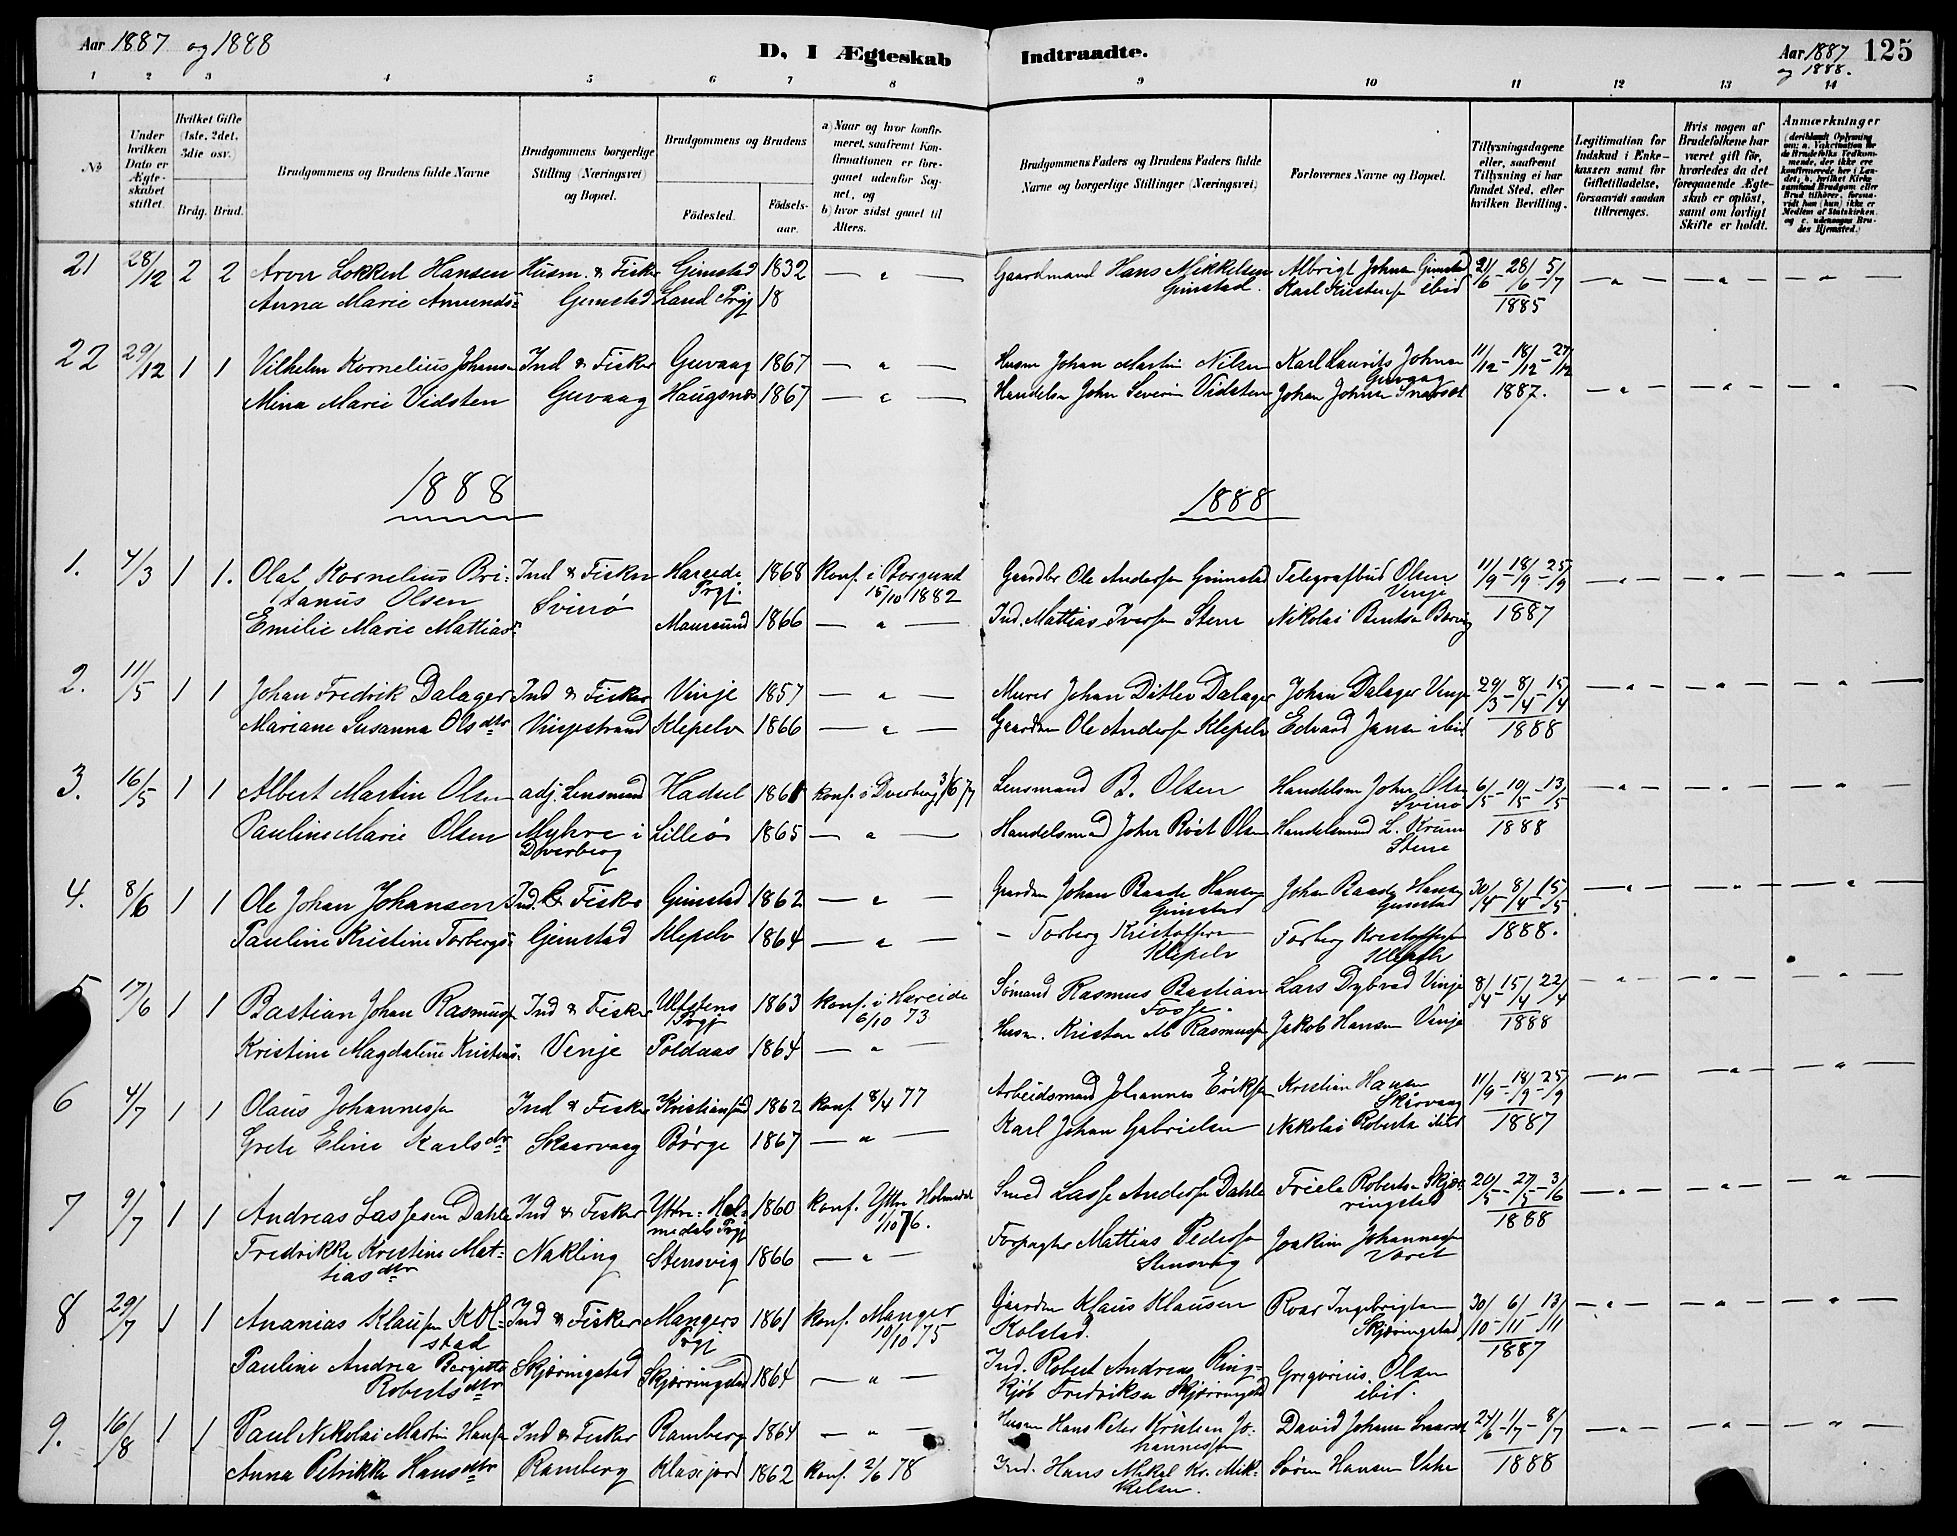 Aar 1887 og 1888
D. I Ægteskab Indtraadte.
Aar 1887 og 1888. 125
1 2 3 4 5 6 7 8 9 10 11 12 13 14
No
Under hvilken Dato er Ægteskabet stiftet.
Hvilket Gifte (1ste. 2det. 3die osv.)
Brdg. Brud.
Brudgommens og Brudens fulde Navne
Brudgommens borgerlige Stilling (Næringsvei) og Bopæl.
Brudgommens og Brudens
Födested. Födselsaar.
a) Naar og hvor konfirmeret, saafremt Konfirmationen er foregaaet udenfor Sognet, og
b) hvor sidst gaaet til Alters.
Brudgommens Faders og Brudens Faders fulde Navne og borgerlige Stillinger (Næringsvei)
Forlovernes Navne og Bopæl.
Tillysningsdagene eller, saafremt Tillysning ei har fundet Sted, efter hvilken Bevilling.
Legitimation for Indskud i Enkekassen samt for Giftetilladelse, forsaavidt saadan tiltrænges.
Hvis nogen af Brudefolkene har været gift för, hvorledes da det foregaaende Ægteskab er oplöst, samt om lovligt Skifte er holdt.
Anmærkninger
21 28/12 2 2 Aron Lokkert Hansen Husm. & Fisker Gimstad 1832 — " — Gaardmand Hans Mikkelsen Albrigt Johns Gimstad 21/6 - 28/6 - 5/7
Anna Marie Amunds- Gimstad Land Prgj 18 Gimstad. Karl Kristens ibid 1885
22 29/12 1 1 Vilhelm Kornelius Johansen Ind & Fisker Guvaag 1867 — " — Husm Johan Martin Nilsen Karl Laurits Johnsen Guvaag 11/12 - 18/12 - 27/12
Mina Marie Vidsten Guvaag Haugsnes 1867 — " — Handelsm John Severin Vidsten Johan Johnsen 1887.
1888 1888
1. 4/3 1 1. Olal Kornelius Bri- Ind & Fisker Hareide Prgj. 1868 Konf. i Borgund 15/10 1882 Gaardbr Ole Andersen Grimstad Telegrafbud Olsen Vinje 11/9 - 18/9 - 25/9
tanus Olsen Svinö
Emilie Marie Mattias- Maursund 1866 — " — Ind. Mattias Iversen Stene Nikolai Bentsen 1887
2. 11/5 1 1 Johan Fredrik Dalager Ind & Fisker Vinje 1857 — " — Murer Johan Ditlev Dalager Johan Dalager Vinje 29/3 - 8/4 - 15/4
Mariane Susanna Olsdtr Vinjestrand Klepelv 1866 — " — Gaardm Ole Anders Klepelv Edvard Jensen ibid 1888
3. 16/5 1 1 Albert Martin Olsen adj. Lensmand Hadsel 1861 Konf. i Dverberg 3/6 77 Lensmand B. Olsen Handelsm John Olsen Svinö 6/5 - 10/5 - 13/5
Pauline Marie Olsen Myhre i Dverberg Lilleö 1865 — " — Handelsmand John Röst Olsen Handelsmand L. Krum Stene 1888
4. 8/6 1 1 Ole Johan Johansen Ind. & Fisker Gimstad 1862 — " — Gaardm Johan Baade Hansen Gimstad Johan Baade Hansen Gimstad 30/4 - 8/4 - 15/5
Pauline Kristine Torbergs- Gimstad Klepelv 1864 — " — - Torberg Kristoffersen Klepelv Torberg Kristoffersen Klepelv 1888.
5 17/6 1 1 Bastian Johan Rasmuss Ind & Fisker Ulfstens Prgj 1863 Konf. i Hareide 6/10 73 Sömand Rasmus Bastian Fosse. Lars Dybvad Vinje 8/4 - 15/4 - 22/4
Kristine Magdaline Kristens- Venje Poldaas 1864 — " — Husm. Kristen M Rasmuss Jakob Hansen Vinje 1888
6 4/7 1 1 Olaus Johannessen Ind & Fisker Kristiansund 1862 Konf. 8/4 77 Arbeidsmand Johannes Eriksen Kristian Hansen Skårvaag 11/9 - 18/9 - 25/9
Grete Eline Karlsdtr Skaarvaag Börge 1867 — " — Karl Johan Gabrielsen Nikolai Roberts ibid 1887
7 9/7 1 1 Andreas Lassesen Dahle Ind & Fisker Yttre-Holmedals Prgj 1860 Konf. Yttre Holmedal 1/10 76. Smed Lasse Anders Dahle Friele Roberts Skjærringstad 20/5 - 27/5 - 3/6
Fredrikke Kristine Mat- Nakling Stensvig 1866 — " — Forpagter Mattias Pedersen Stensvig Joakim Johannessen 1888
tiasdtr
8 29/7 1 1 Ananias Klausen Kol- Ind & Fisker Mangers Prgj 1861 Konf. Manger 10/10 75 Gaardm Klaus Klausen Roar Ingebrigtsen Skjæringstad 30/10 - 6/11 - 13/11
stad Kolstad. 1887
Pauline Andrea Bergitte Skjæringstad Skjærringstad 1864 — " — Ind. Robert Andreas Ring- Gregorius Olsen
Robertsdtr kjöb Fredriksen Skjærringstad ibid.
9. 16/8 1 1 Paul Nikolai Martin Hansen Ind & Fisker Ramberg 1864 — " — Husm Hans Peter Kristian Jo- David Johans 24/6 - 1/7 - 8/7
hannessen
Anna Petrikke Hansdtr Ramberg Klasejord 1862 Konf. 2/6 78 Ind. Hans Mikal Kr. Mik- Sören Hansen 1888
kelsen.